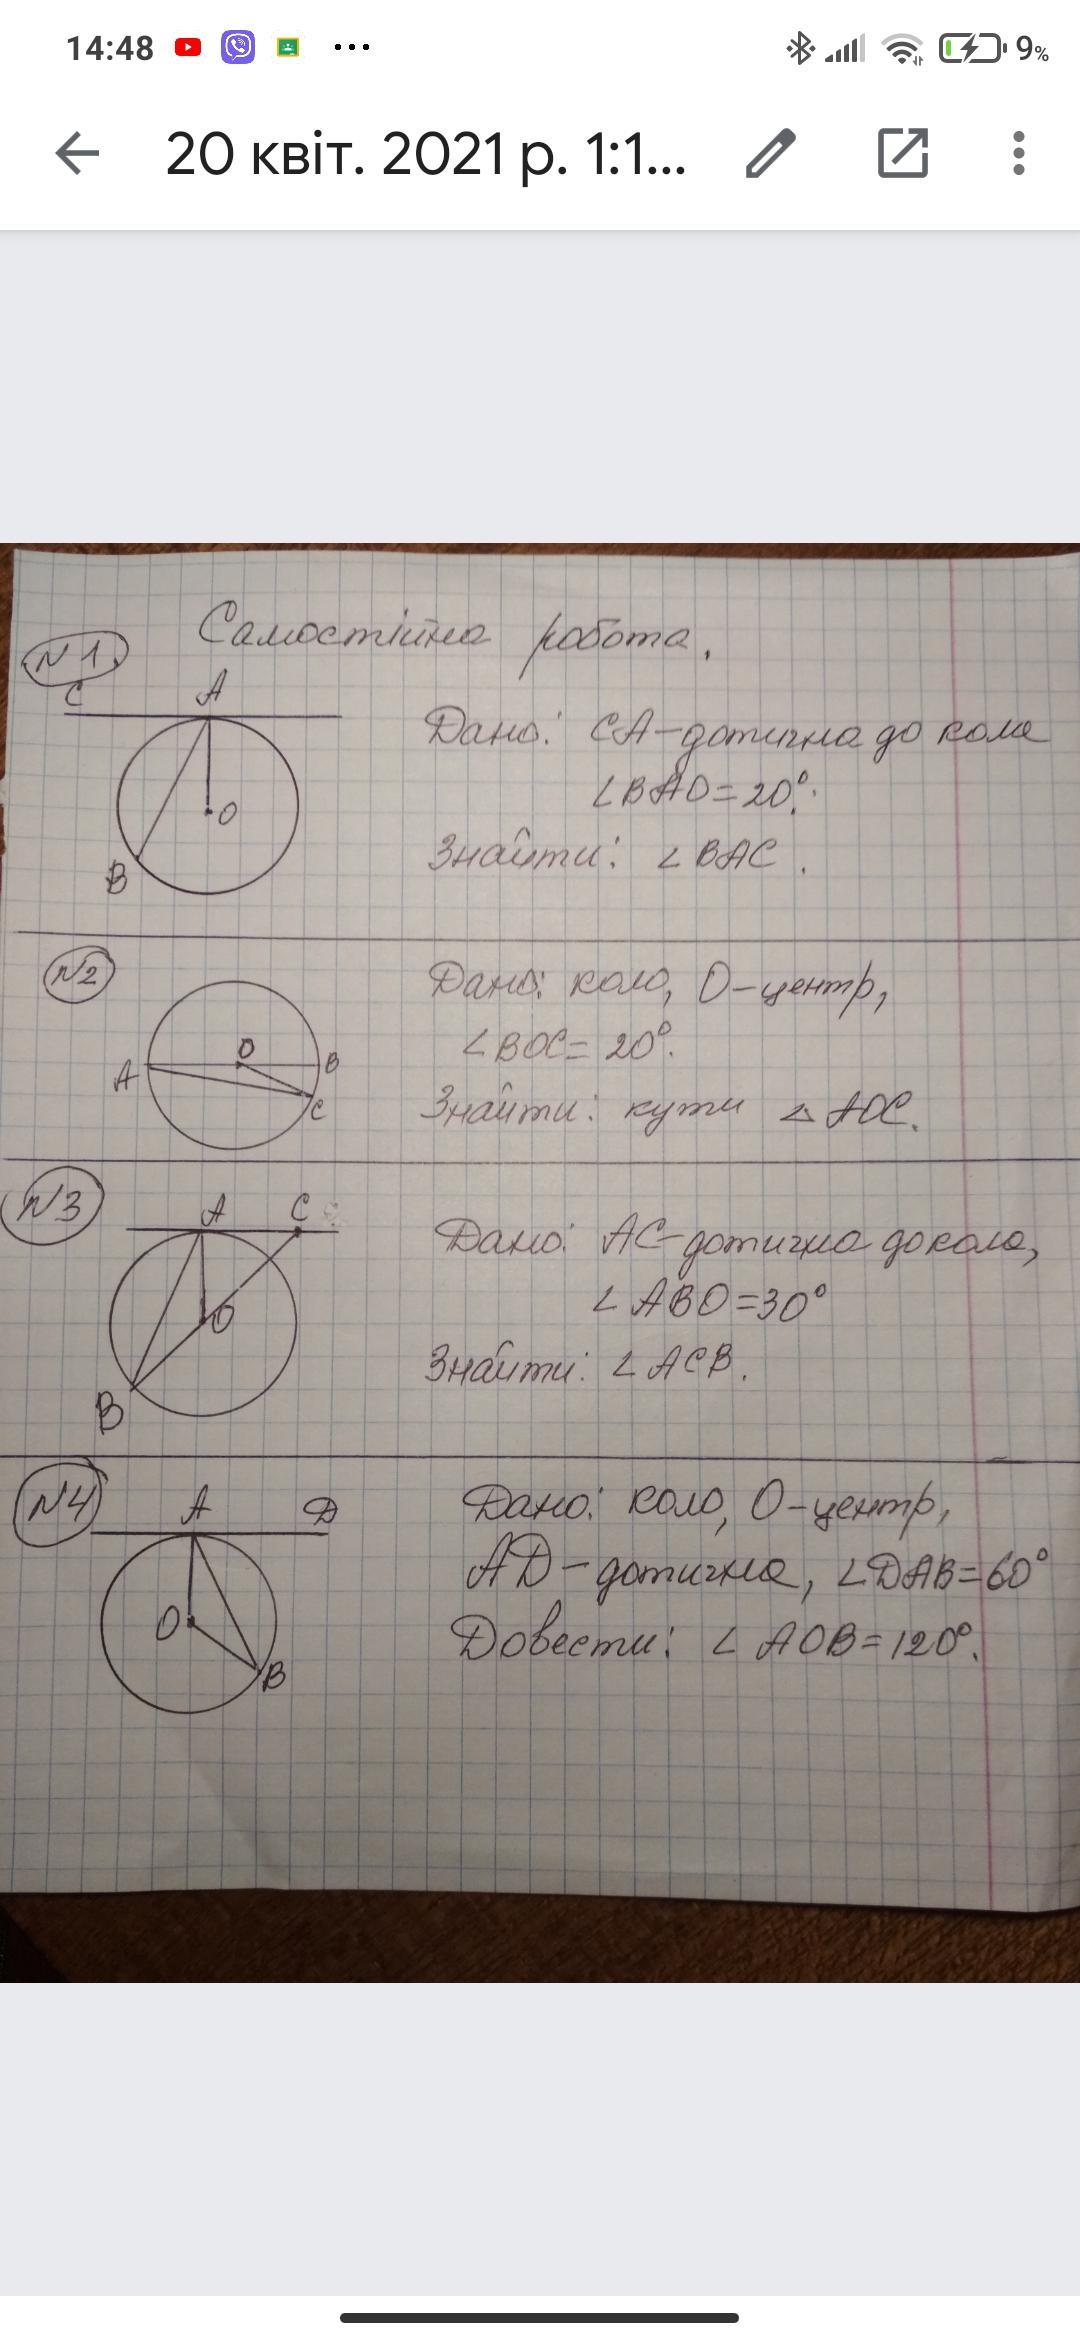 14:48
9%
20 квіт. 2021 р. 1:1...
Самостійна робота.
№1
C A
O
B
Дано: CA-дотична до кола
∠BAO=20°.
Знайти: ∠BAC.
№2
O
A B
C
Дано: коло, O-центр,
∠BOC=20°.
Знайти: кути △AOC.
№3
A C
O
B
Дано: AC-дотична до кола,
∠ABO=30°
Знайти: ∠ACB.
№4
A D
O
B
Дано: коло, O-центр,
AD-дотична, ∠DAB=60°
Довести: ∠AOB=120°.